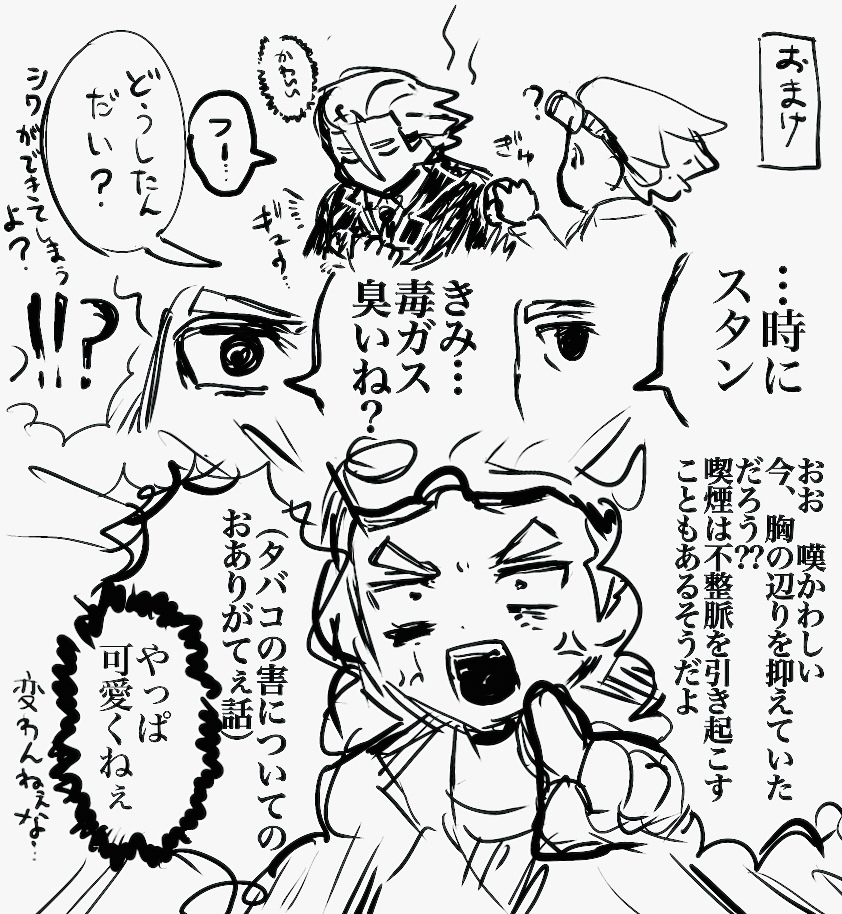 おまけ
?
ぎゅ
かわいい
ギュウ…
フー…
どうしたん
だい?
シワができてしまう
よ?
…時に
スタン
きみ…
毒ガス
臭いね?
!!?
おお 嘆かわしい
今、胸の辺りを抑えていた
だろう??
喫煙は不整脈を引き起こす
こともあるそうだよ
(タバコの害についての
おありがてぇ話)
やっぱ
可愛くねぇ
変わんねぇな…